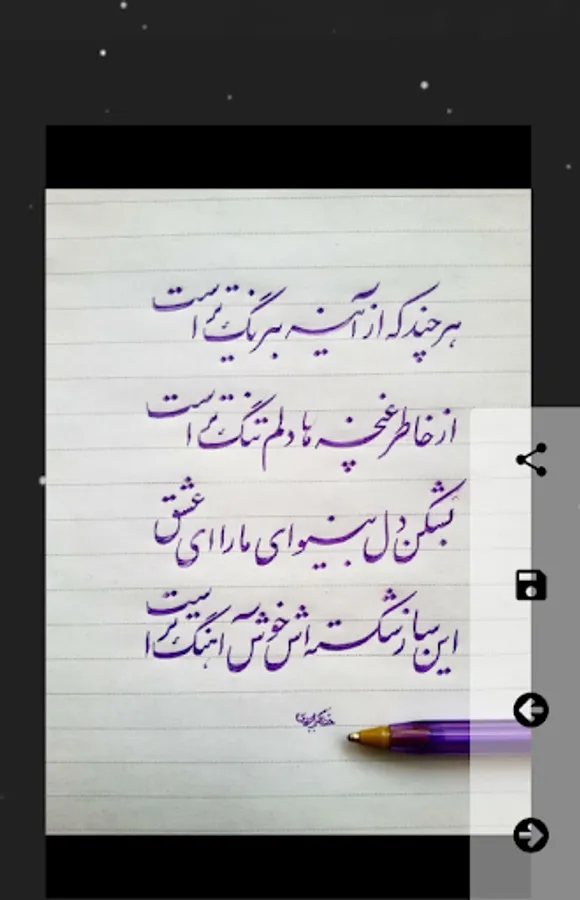 هر چند که از آینه بیرنگ تر است
از خاطر غنچه ها دلم تنگ تر است
بشکن دل بینوای ما را ای عشق
این ساز شکسته اش خوش آهنگ تر است